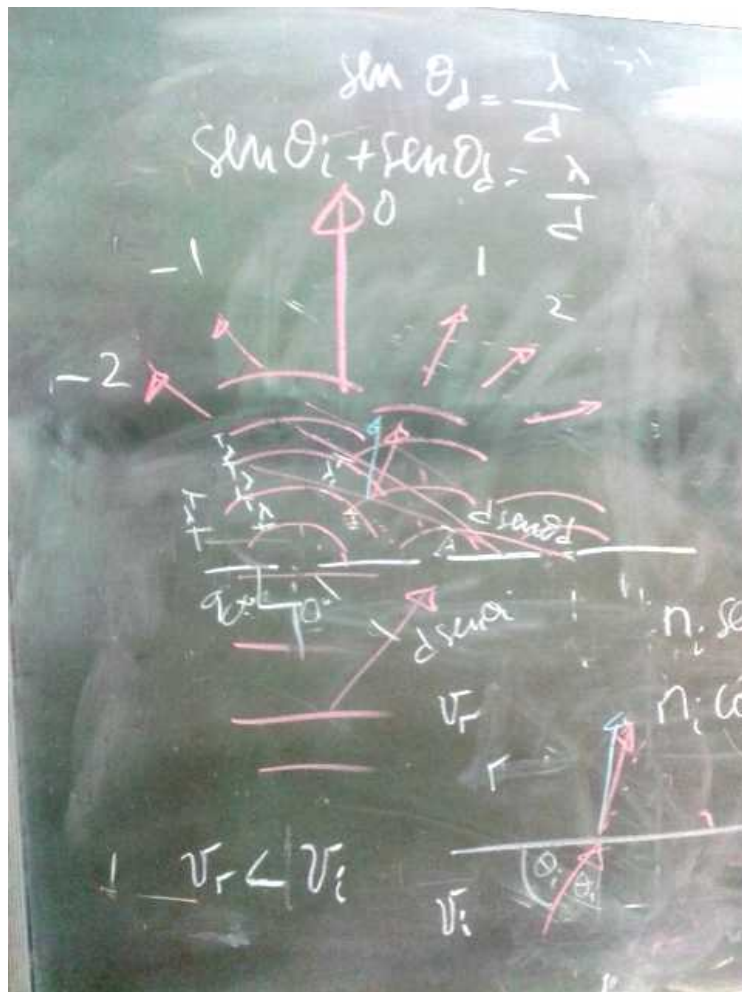 sen θd = λ/d
sen θi + sen θd = λ/d
0
-1 1
2
-2
λ
λ
λ λ
d sen θd
90° 0°
d sen θi
ni se
vr ni co
r
vr < vi
θi θi
vi